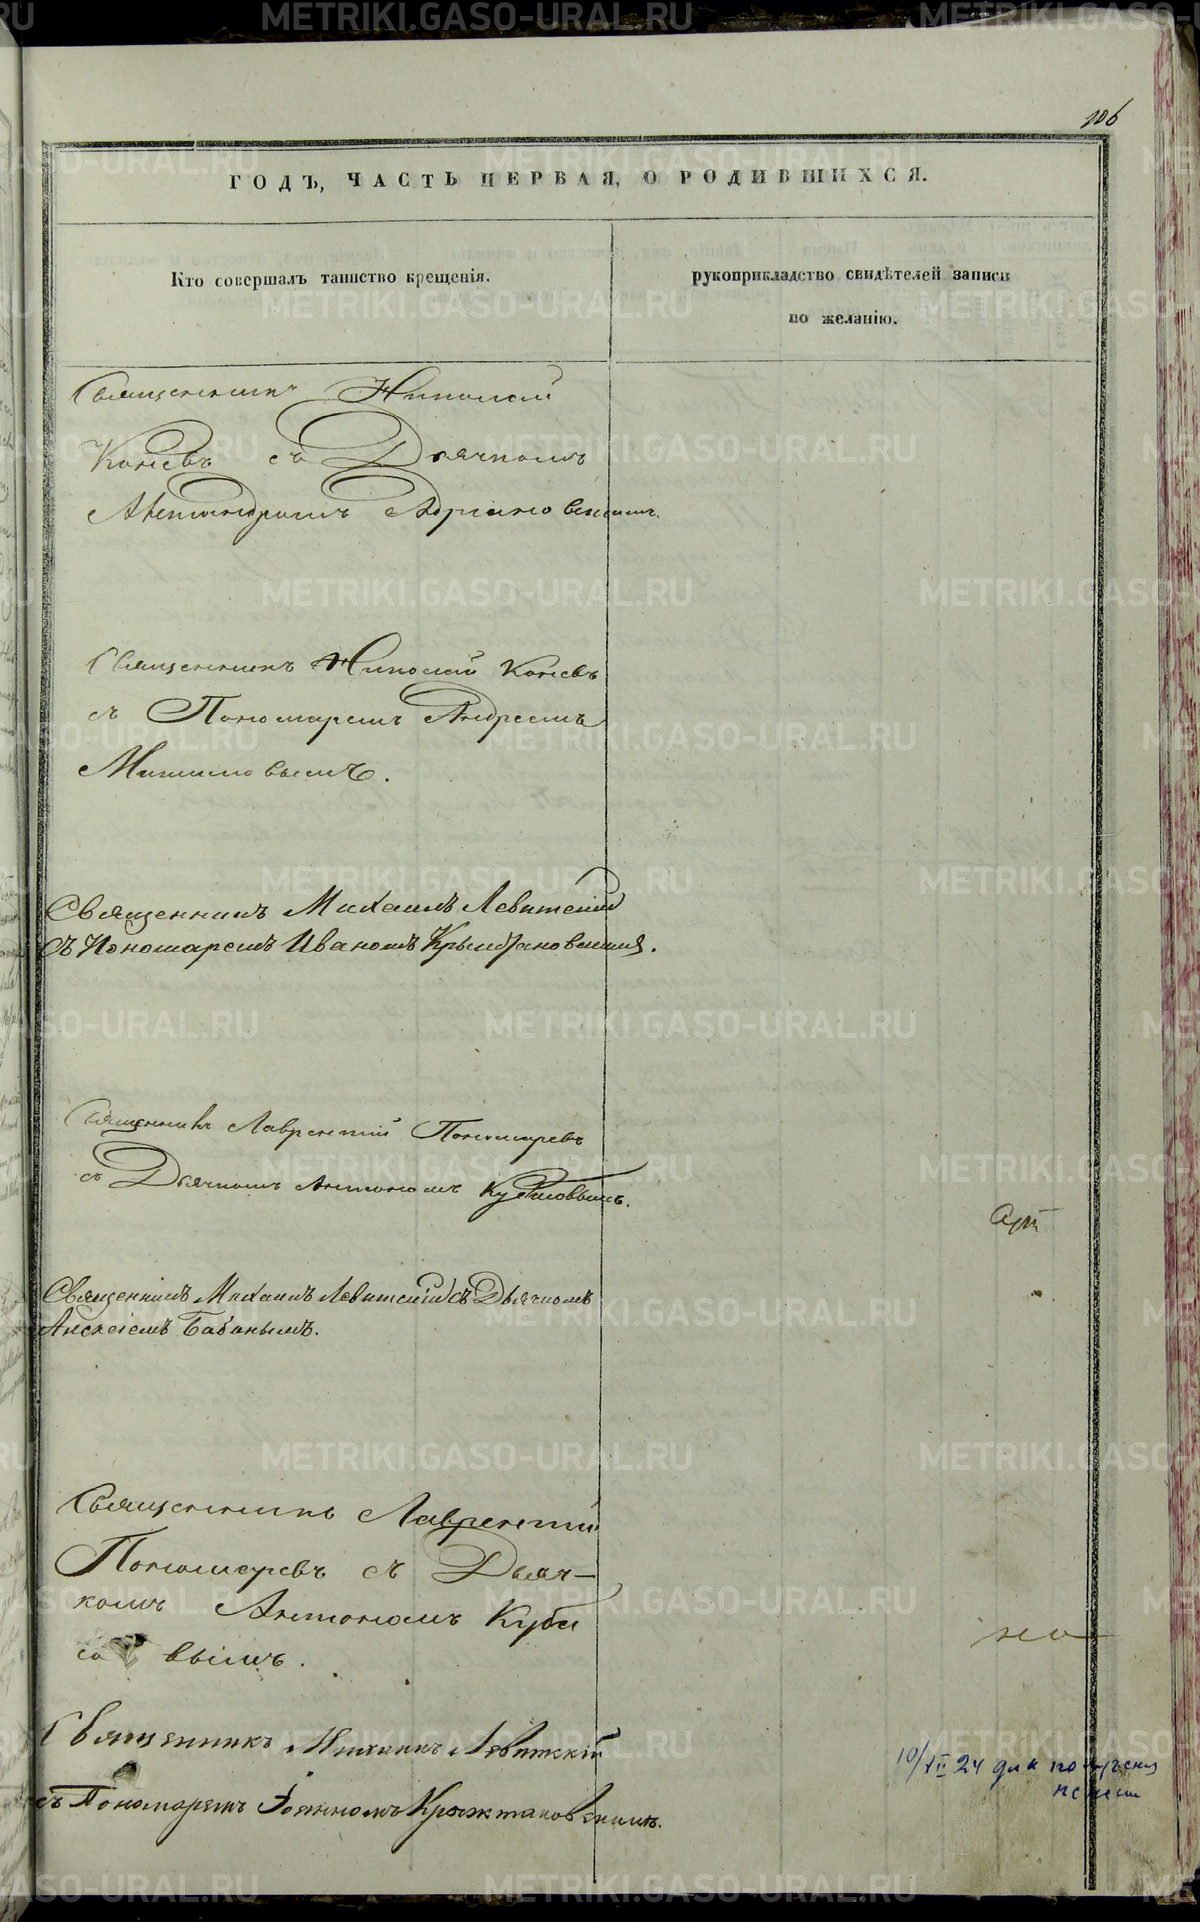 106
ГОДЪ, ЧАСТЬ ПЕРВАЯ, О РОДИВШИХСЯ.
Кто совершалъ таинство крещенія.
рукоприкладство свидѣтелей записи
по желанію.
Священникъ Николай
Коневъ съ Дьячкомъ
Александромъ Адріановскимъ.
Священникъ Николай Коневъ
съ Пономаремъ Андреемъ
Священникъ Михаилъ Левитскій
съ Пономаремъ Иваномъ
Священникъ Лаврентій Пономаревъ
съ Дьячкомъ Антономъ Кубасовымъ.
Священникъ Михаилъ Левитскій съ Дьячкомъ
Алексіемъ Бабинымъ.
Священникъ Лаврентій
Пономаревъ съ Дьяч-
комъ Антономъ Куба
совымъ.
Священникъ Михаилъ Левитскій
съ Пономаремъ Іоанномъ
10/XII 24 для получения
METRIKI.GASO-URAL.RU